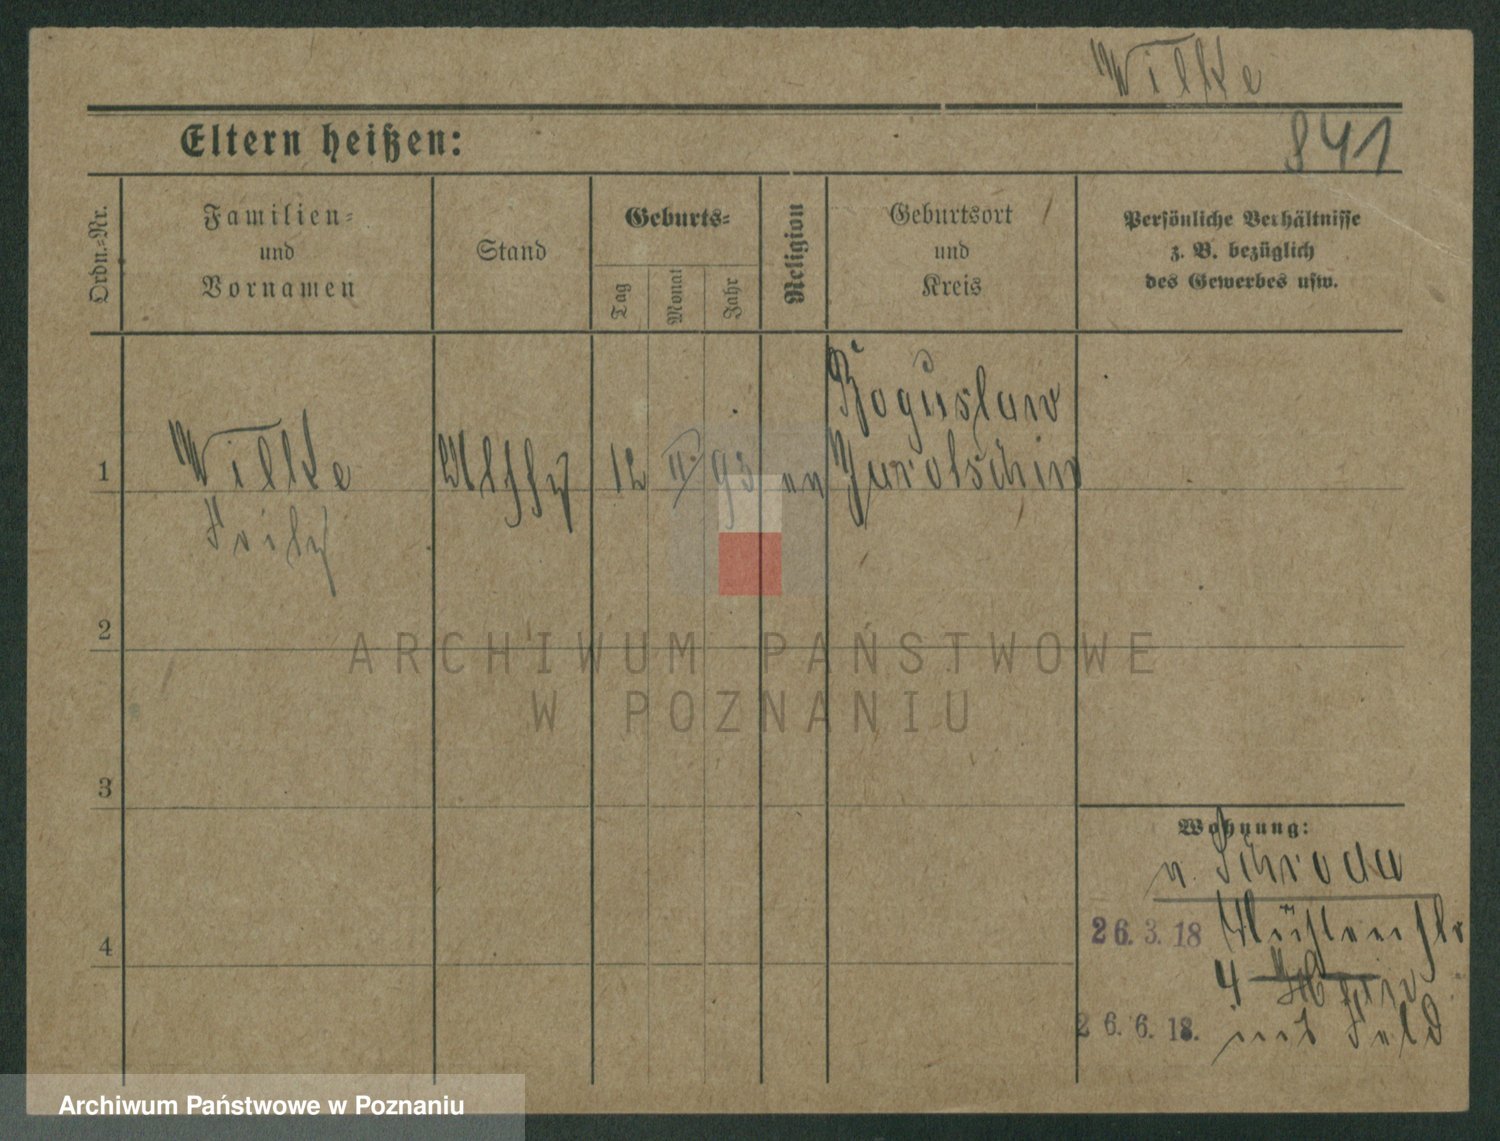 Wilke
841
Eltern heißen:
Ordn.-Nr.
Familien-
und
Vornamen
Stand
Geburts-
Tag
Monat
Jahr
Religion
Geburtsort
und
Kreis
Persönliche Verhältnisse
z. B. bezüglich
des Gewerbes usw.
Boguslaw
1 Wilke 12 II. 93 Jarotschin
Fritz
2
3
Wohnung:
n. Schroda
26.3.18
4
4
26.6.18. ins Feld
ARCHIWUM PAŃSTWOWE
W POZNANIU
Archiwum Państwowe w Poznaniu